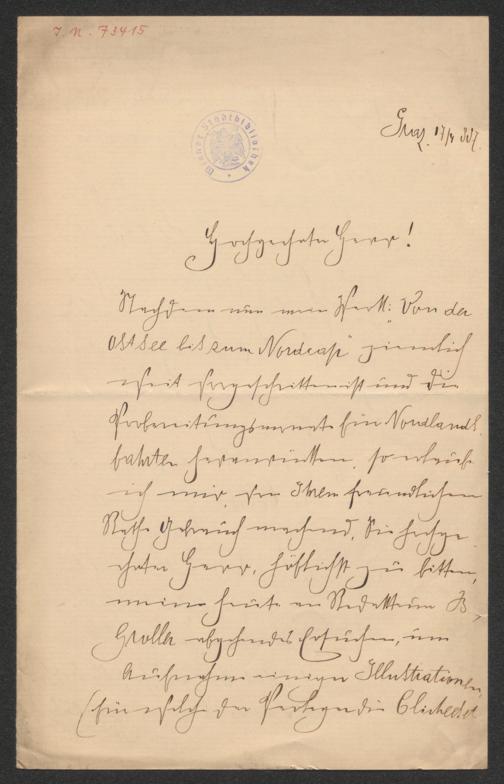 I. N. 73415
Wiener Stadtbibliothek
Graz, 17/4 887.
Hochgeehrter Herr!
Nachdem nun mein Werk: "Von der
Ostsee bis zum Nordcap" ziemlich
weit vorgeschritten ist und die
Vorbereitungsmonate für Nordlands-
fahrten heranrücken, so erlaube
ich mir, von Ihrem freundlichen
Rathe Gebrauch machend, Sie hochge-
ehrter Herr, höflichst zu bitten,
mein heute an Redakteur B.
Groller abgehendes Ersuchen, um
Aufnahme einiger Illustrationen
(für welche der Verleger die Clichees